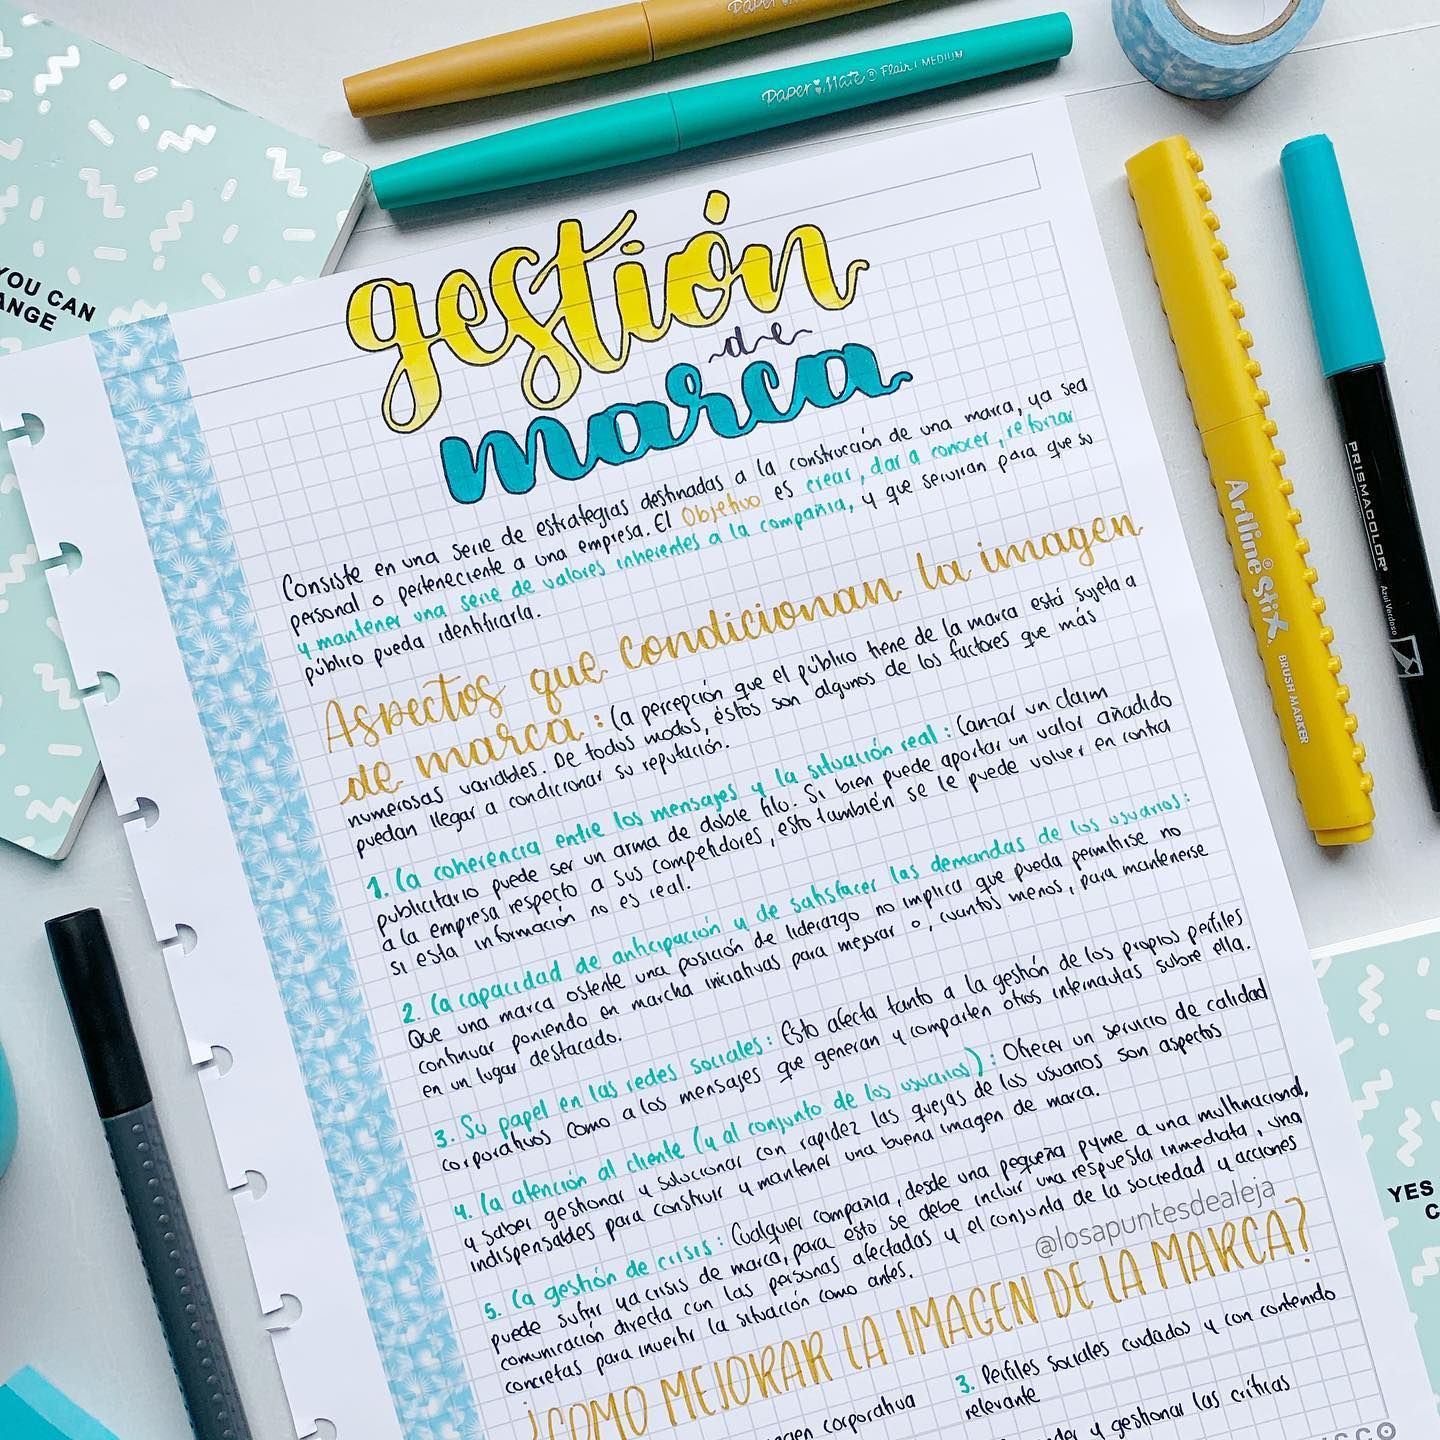 Paper Mate
Paper Mate Flair | MEDIUM
YOU CAN
ANGE
gestión
de
marca
Consiste en una serie de estrategias destinadas a la construcción de una marca, ya sea
personal o perteneciente a una empresa. El Objetivo es crear, dar a conocer, reforzar
y mantener una serie de valores inherentes a la compañía, y que servirán para que su
público pueda identificarla.
Aspectos que condicionan la imagen
de marca: La percepción que el público tiene de la marca está sujeta a
numerosas variables. De todos modos, éstos son algunos de los factores que más
puedan llegar a condicionar su reputación.
1. La coherencia entre los mensajes y la situación real: Lanzar un claim
publicitario puede ser un arma de doble filo. Si bien puede aportar un valor añadido
a la empresa respecto a sus competidores, esto también se le puede volver en contra
si esta información no es real.
2. La capacidad de anticipación y de satisfacer las demandas de los usuarios:
Que una marca ostente una posición de liderazgo no implica que pueda permitirse no
continuar poniendo en marcha iniciativas para mejorar o, cuantos menos, para mantenerse
en un lugar destacado.
3. Su papel en las redes sociales: Esto afecta tanto a la gestión de los propios perfiles
corporativos como a los mensajes que generan y comparten otros internautas sobre ella.
4. La atención al cliente (y al conjunto de los usuarios): Ofrecer un servicio de calidad
y saber gestionar y solucionar con rapidez las quejas de los usuarios son aspectos
indispensables para construir y mantener una buena imagen de marca.
5. La gestión de crisis: Cualquier compañía, desde una pequeña pyme a una multinacional,
puede sufrir ya crisis de marca, para esto se debe incluir una respuesta inmediata, una
comunicación directa con las personas afectadas y el conjunto de la sociedad y acciones
concretas para invertir la situación como antes.
@losapuntesdealeja
¿COMO MEJORAR LA IMAGEN DE LA MARCA?
corporativa
3. Perfiles sociales cuidados y con contenido
relevante
y gestionar las críticas
Artline Stix BRUSH MARKER
PRISMACOLOR Azul Verdoso
YES